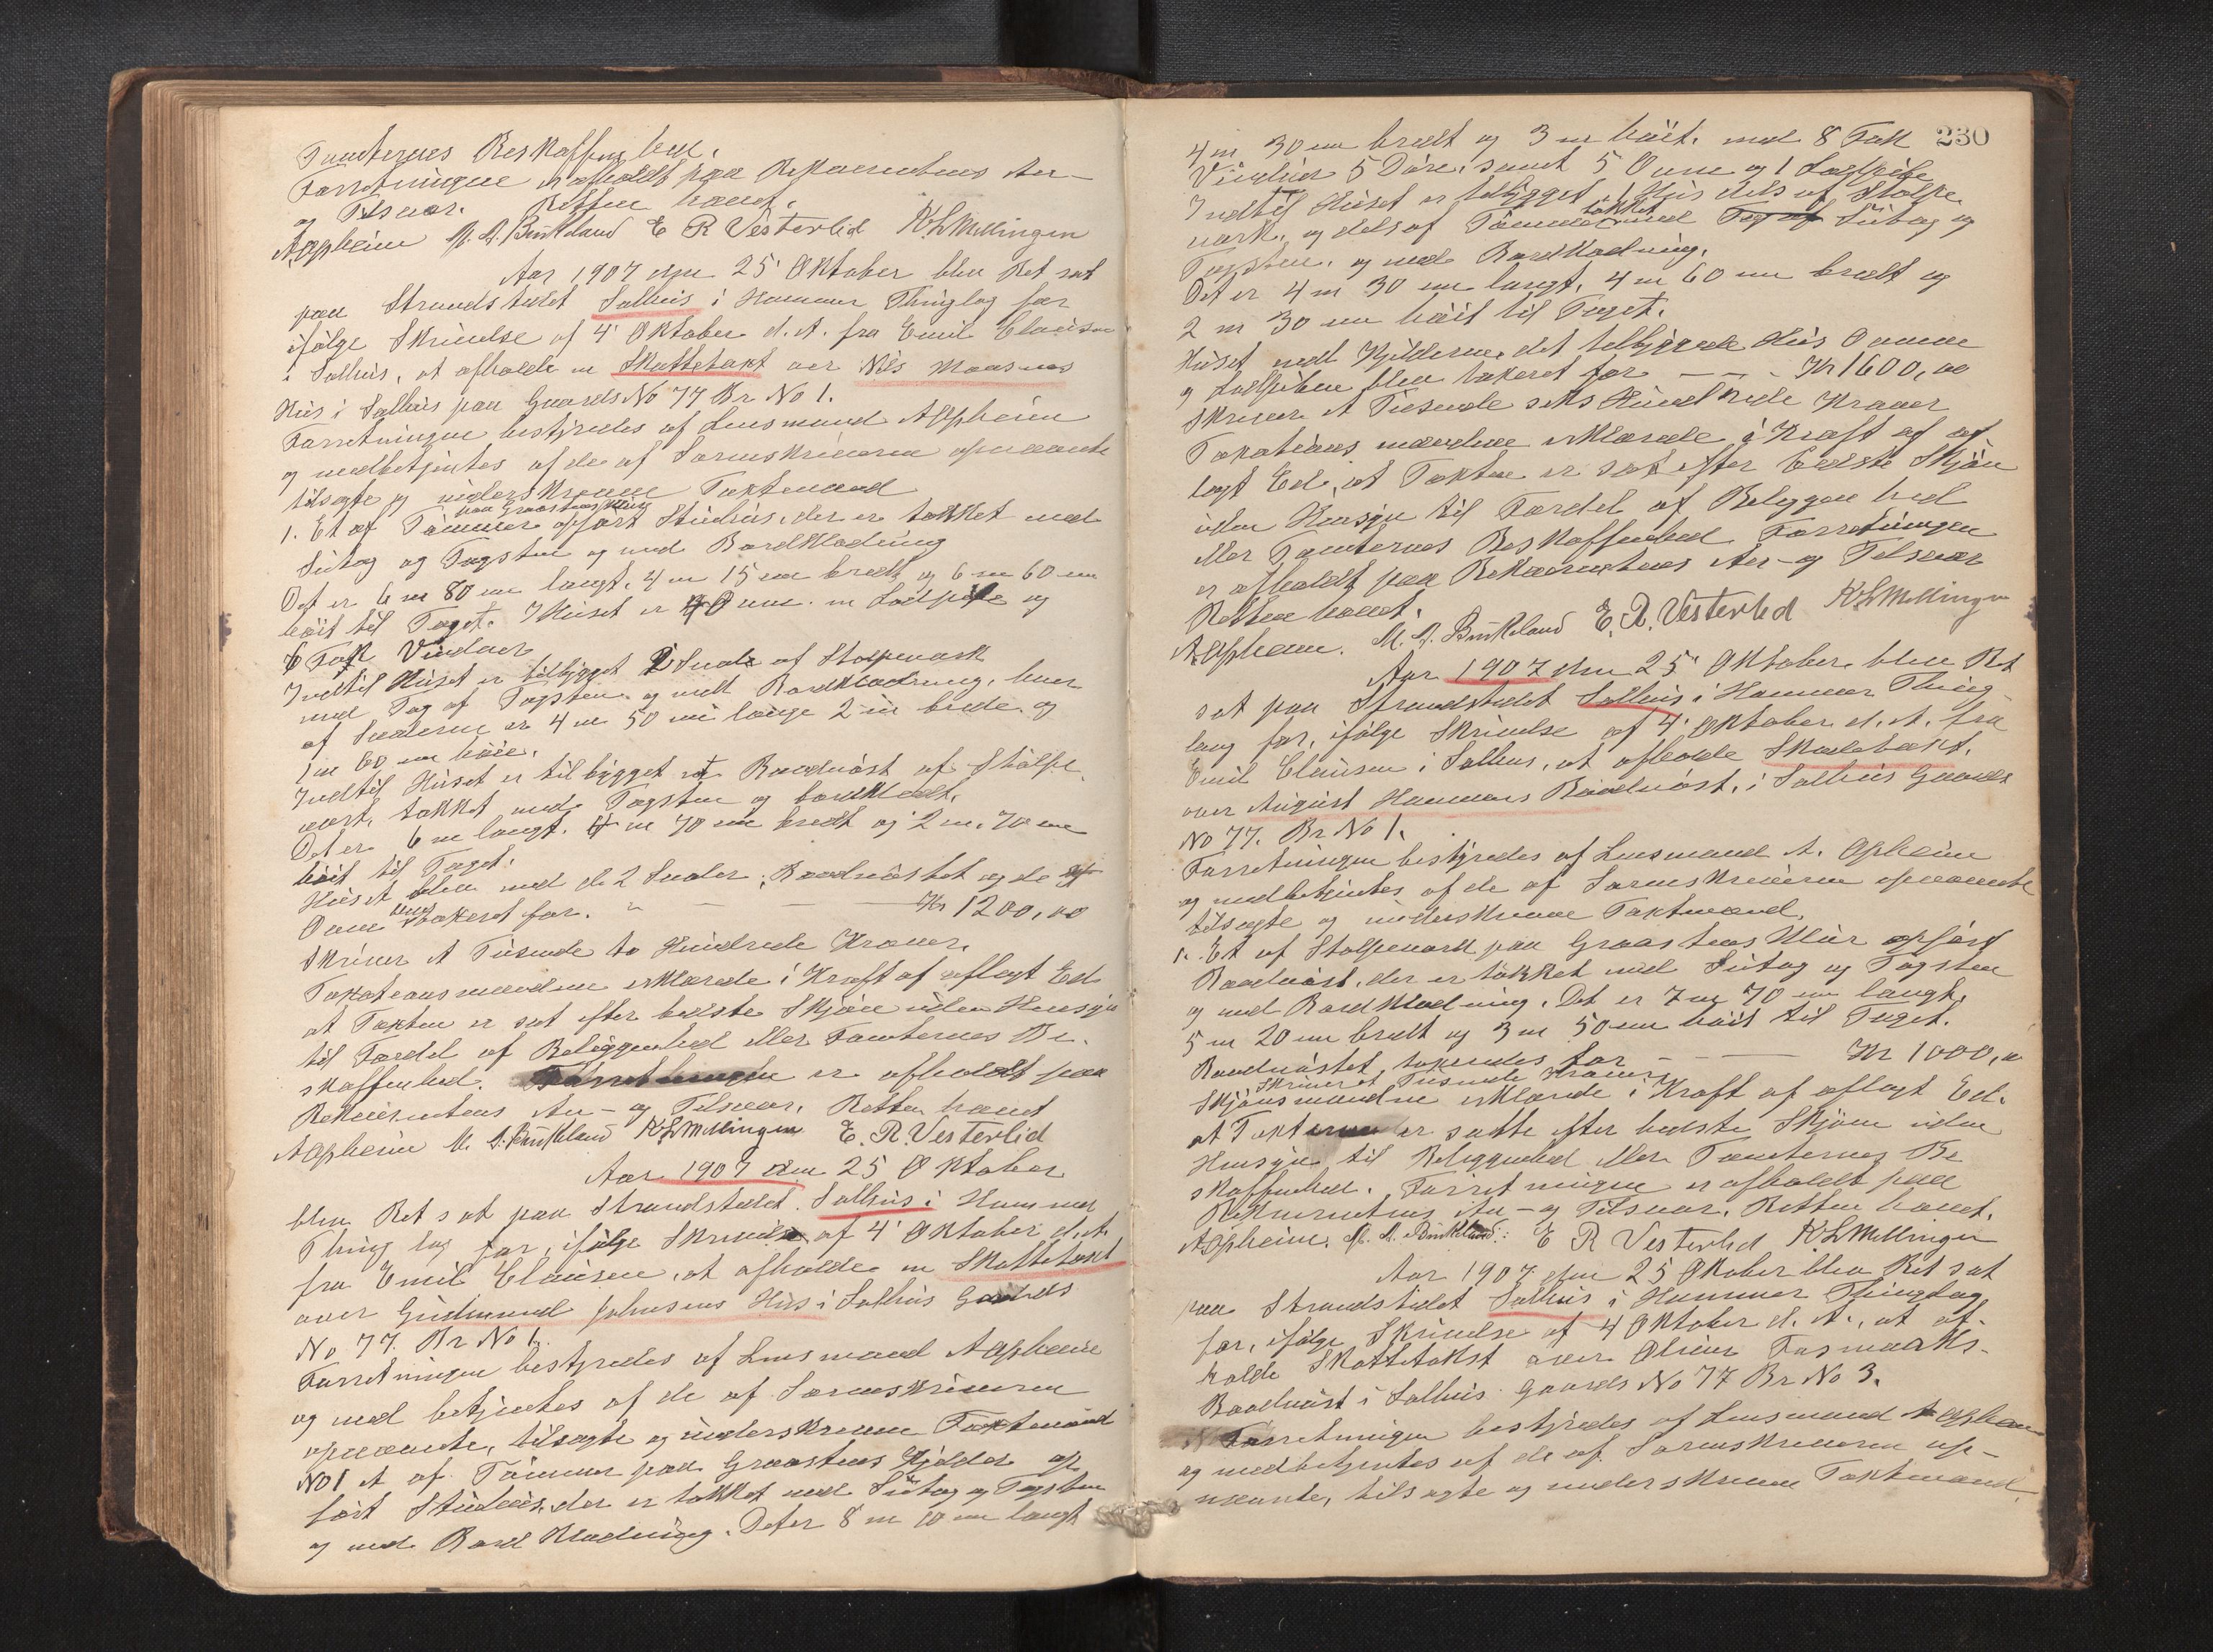 Tomternes Beskaffenhed.
Forretningen er afholdt paa Rekvirentens An-
og Tilsvar. Retten hævet.
A Opheim M. A. Birkeland E R Vesterlid K L Mellingen
Aar 1907 den 25' Oktober blev Ret sat
paa Strandstedet Salhus i Hammer Thinglag for
ifølge Skrivelse af 4' Oktober d. A. fra Emil Clausen
i Salhus, at afholde en Skattetaxt over Nils Monsens
Hus i Salhus paa Gaards No 77 Br No 1.
Forretningen bestyredes af Lensmand A Opheim
og medbetjentes af de af Sorenskriveren opnævnte
tilsagte og underskrevne Taxtmænd
paa Graastensmur
1. Et af Tømmer opført Stuehus, der er tækket med
Sutag og Tagsten og med Bordklædning
Det er 6 m 80 cm langt, 4 m 15 cm bredt og 6 m 60 cm
høit til Taget. I Huset er Ovne en Lodpibe og
6 Fak Vinduer
Indtil Huset er tilbygget 2 Svaler af Stolpeværk
med Tag af Tagsten og med Bordklædning, hver
af Svalerne er 4 m 50 cm lange 2 m brede og
1 m 60 cm høie.
Indtil Huset er tilbygget et Baadnøst af Stolpe
værk, tækket med Tagsten og bordklædt.
Det er 6 m langt. 4 m 70 cm bredt og 2 m. 70 cm
høit til Taget.
Huset blev med de 2 Svaler, Baadnøstet og de
Ovne takseret for. Kr 1200,00
Skriver et Tusende to Hundrede Kroner.
Taxationsmændene erklærede i Kraft af aflagt Ed
at Taxten er sat efter bedste Skjøn uden Hensyn
til Fordel af Beliggenhed eller Tomternes Be-
skaffenhed. Forretningen er afholdt paa
Rekvirentens An- og Tilsvar. Retten hævet
A Opheim M. A. Birkeland K L Mellingen E. R. Vesterlid
Aar 1907 den 25 Oktober
blev Ret sat paa Strandstedet Salhus i Hammer
Thinglag for, ifølge Skrivelse af 4' Oktober d. A.
fra Emil Clausen, at afholde en Skattetaxt
over Gudmund Johnsens Hus i Salhus Gaards
No 77. Br No 1.
Forretningen bestyredes af Lensmand A Opheim
og med betjentes af de af Sorenskriveren
opnævnte, tilsagte og underskrevne Taxtmænd
No 1 et af Tømmer paa Graastens Kjelder op
ført Stuehus, der er tækket med Sutag og Tagsten
og med Bord klædning. Det er 8 m 10 cm langt
230
4 m 30 cm bredt og 3 m høit. med 8 Fak
Vinduer 5 Døre, samt 5 Ovne og 1 Lodpibe
Indtil Huset er tilbygget 1 Hus dels af Stolpe
værk, og dels af Tømmer tækket med Tag af Sutag og
Tagsten. og med Bordklædning.
Det er 4 m 30 cm langt, 4 m 60 cm bredt og
2 m 30 cm høit til Taget.
Huset medt Kjelderne, det tilbyggede Hus Ovnene
og Lodpiben blev takseret for Kr 1600,00
skriver et Tusende seks Hundrede Kroner
Taxationsmændene erklærede i Kraft af af
lagt Ed, at Taxten er sat efter bedste Skjøn
uden Hensyn til Fordel af Beliggenhed
eller Tomternes Beskaffenhed. Forretningen
er afholdt paa Rekvirentens An- og Tilsvar
Retten hævet.
A Opheim. M. A. Birkeland E. R. Vesterlid K L Mellingen
Aar 1907 den 25' Oktober blev Ret
sat paa Strandstedet Salhus i Hammer Thing-
lag for, ifølge Skrivelse af 4' Oktober d. A. fra
Emil Clausen i Salhus, at afholde Skattetaxt.
over August Hammers Baadnøst, i Salhus Gaards
No 77. Br No 1.
Forretningen bestyredes af Lensmand A. Opheim
og medbetjentes af de af Sorenskriveren opnævnte
tilsagte og underskrevne Taxtmænd.
1. Et af Stolpeværk paa Graastens Mur opført
Baadnøst, der er tækket med Sutag og Tagsten
og med Bordklædning. Det er 7 m 70 cm langt,
5 m 20 cm bredt og 3 m 50 cm høit til Taget.
Baadnøstet taxeredes for Kr 1000,00
Skriver et Tusende Kroner
Skjønsmændene erklærede i Kraft af aflagt Ed.
at Taxterne er satte efter bedste Skjøn uden
Hensyn til Beliggenhed eller Tomternes Be
skaffenhed. Forretningen er afholdt paa
Rekvirentens An- og Tilsvar. Retten hævet.
A Opheim. M. A. Birkeland: E R Vesterlid K L Mellingen
Aar 1907 den 25 Oktober blev Ret sat
paa Strandstedet Salhus i Hammer Thinglag
for, ifølge Skrivelse af 4 Oktober d. A., at af-
holde Skattetakst over Oliver Fasmarks-
Baadnøst i Salhus Gaards No 77 Br No 3.
Forretningen bestyredes af Lensmand A Opheim
og medbetjentes af de af Sorenskriveren op-
nævnte, tilsagte og underskrevne Taxtmænd.